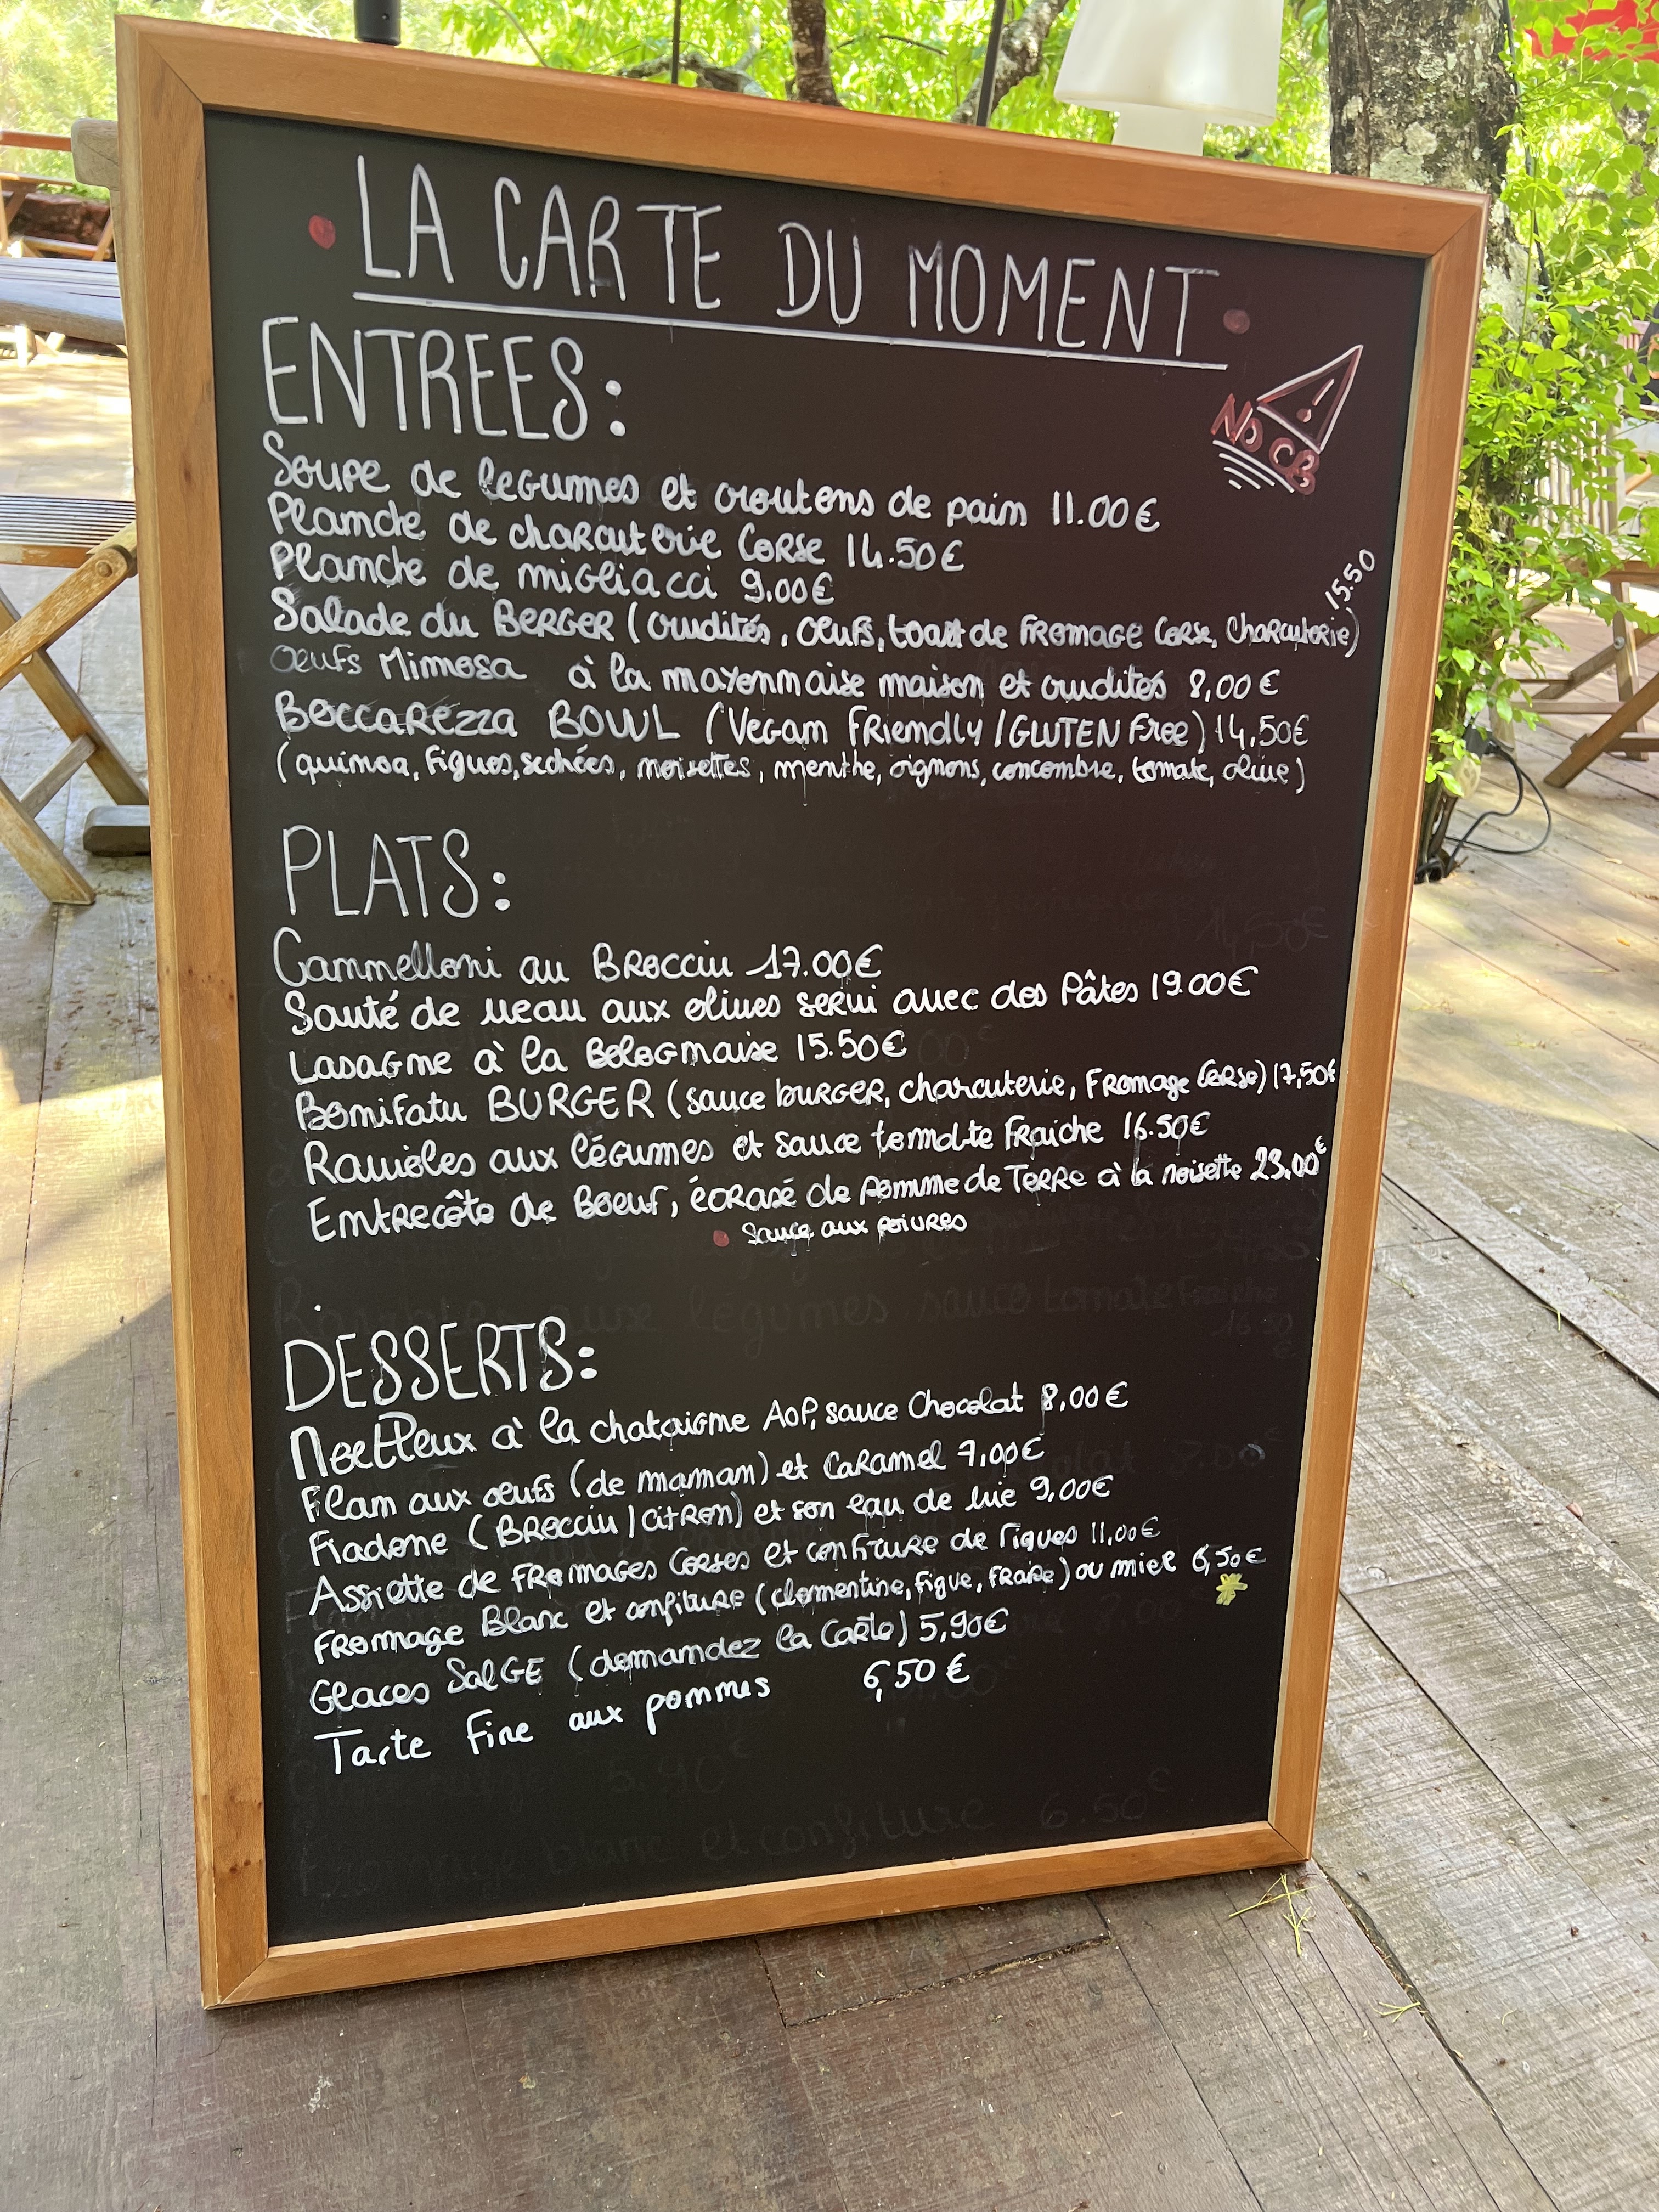 LA CARTE DU MOMENT
NO CB
ENTREES:
Soupe de legumes et croutons de pain 11.00€
Planche de charcuterie Corse 14.50€
Planche de migliacci 9.00€
Salade du BERGER (crudités, oeufs, toast de fromage Corse, Charcuterie) 15.50
Oeufs Mimosa à la mayonnaise maison et crudités 8,00€
Boccarezza BOWL (Vegan Friendly / GLUTEN Free) 14,50€
(quinoa, figues, sechées, noisettes, menthe, oignons, concombre, tomate, olive)
PLATS:
Cannelloni au Brocciu 17.00€
Sauté de veau aux olives servi avec des Pâtes 19.00€
Lasagne à la Bolognaise 15.50€
Bonifatu BURGER (sauce burger, charcuterie, Fromage Corse) 17,50€
Ravioles aux légumes et sauce tomate fraiche 16.50€
Entrecôte de Boeuf, écrasé de pomme de Terre à la noisette 23.00€
Sauce aux poivres
DESSERTS:
Moelleux à la chataigne AOP, sauce Chocolat 8,00€
Flan aux oeufs (de maman) et Caramel 7,00€
Fiadone (Brocciu / citron) et son eau de vie 9,00€
Assiette de fromages Corses et confiture de figues 11,00€
Fromage Blanc et confiture (clementine, figue, fraise) ou miel 6,50€
Glaces SalGE (demandez la Carte) 5,90€
Tarte fine aux pommes 6,50€